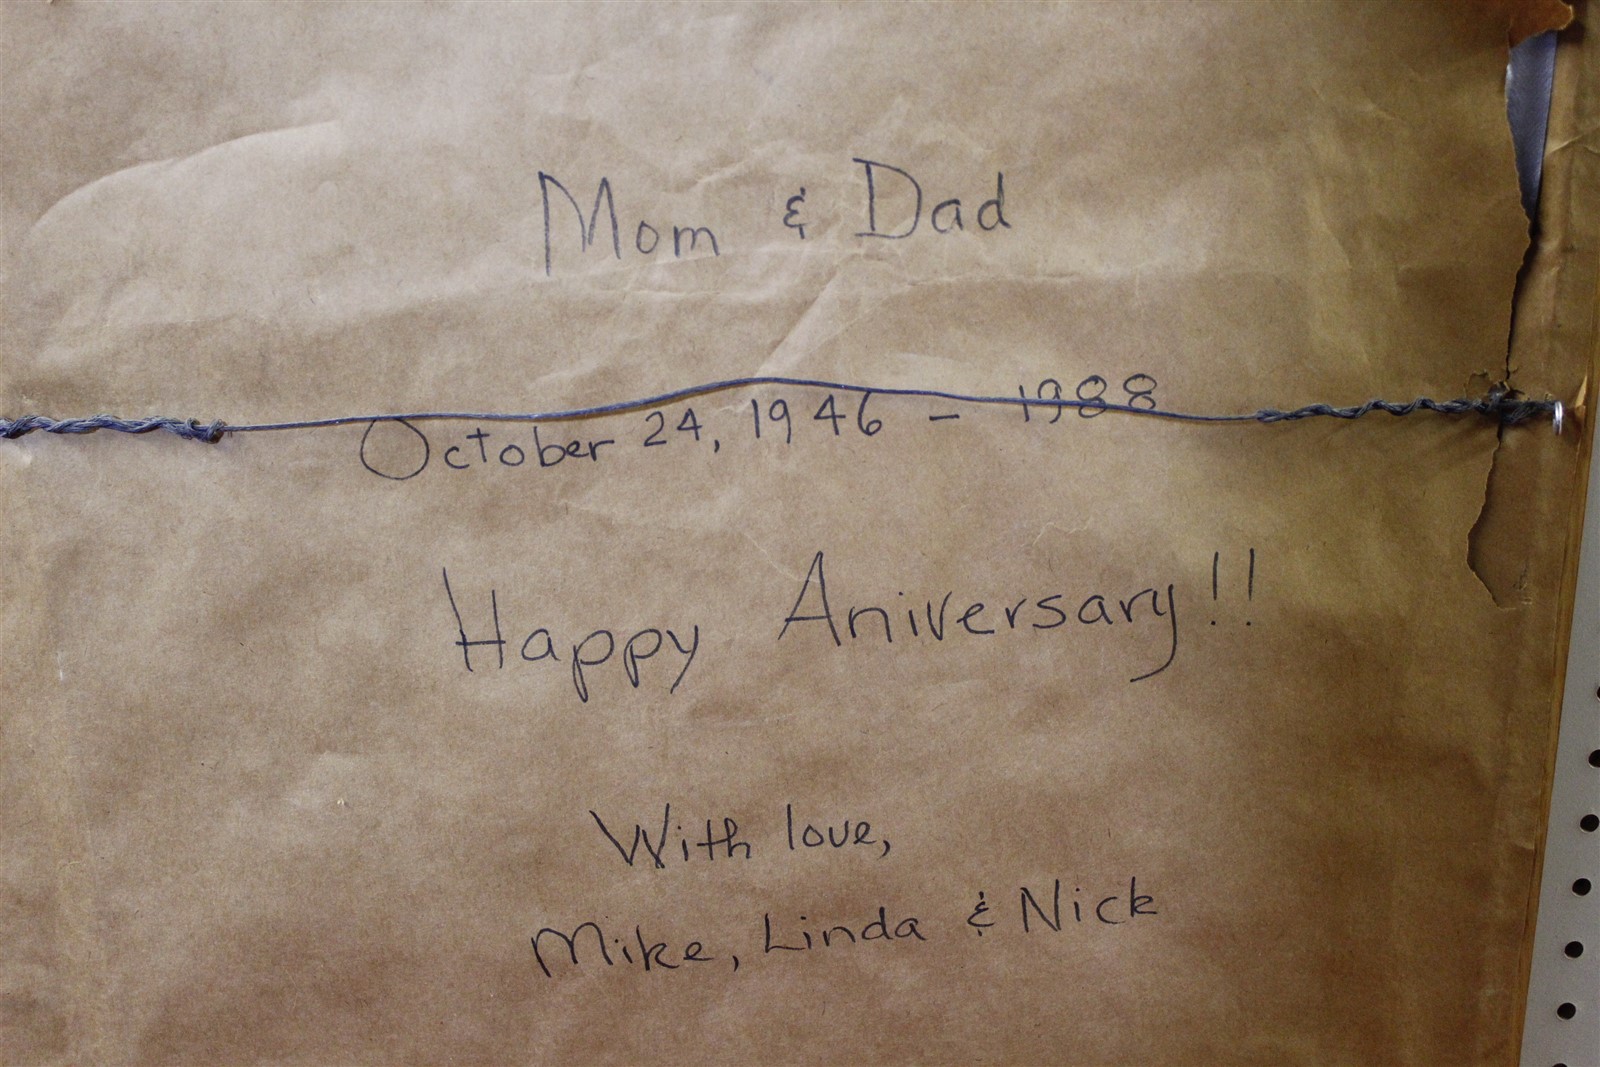 Mom & Dad
October 24, 1946 - 1988
Happy Aniversary!!
With love,
Mike, Linda & Nick